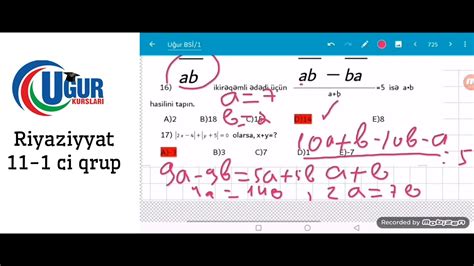 UĞUR
KURSLARI
Riyaziyyat
11-1 ci qrup
Uğur BSİ/1
725
16) ab ikirəqəmli ədədi üçün ab − ba / a+b =5 isə a+b
hasilini tapın.
A)2 B)18 C) D)14 E)8
a=7
b=2
17) |2x−4|+|y+5|=0 olarsa, x+y=?
A)-3 B)3 C)7 D)1 E)-7
10a+b-10b-a
a+b
: 5
9a-9b=5a+5b
4a=14b, 2a=7b
Recorded by